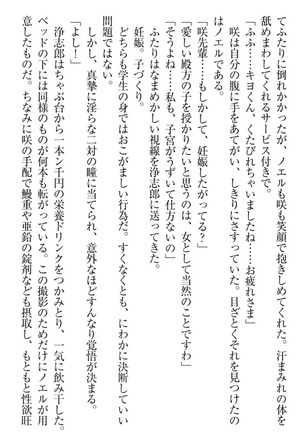 てふたりに倒れかかったが、ノエルも咲も笑顔で抱きしめてくれた。汗まみれの体を
舐めまわしてくれるサービス付きで。
「ふふっ……キヨくん、くたびれちゃいましたね……お疲れさま」
咲は自分の腹に手をあてがい、しきりにさすっていた。目ざとくそれを見つけたの
はノエルである。
「咲先輩……もしかして、妊娠したがってる?」
「愛しい殿方の子を授かりたいと思うのは、女として当然のことですわ」
「そうよね……私も、子宮がうずいて仕方ないの」
ふたりはなまめかしい視線を浄志郎に送ってきた。
妊娠。子づくり。
どちらも学生の身ではおこがましい行為だ。すくなくとも、にわかに決断していい
問題ではない。
しかし、真摯に淫らな二対の瞳に当てられ、意外なほどすんなり覚悟が決まる。
「よし!」
浄志郎はちゃぶ台から一本ン千円の栄養ドリンクをつかみとり、一気に飲み干した。
ベッドの下には同様のものが何本も転がっている。この撮影のためだけにノエルが用
意したものだ。ちなみに咲の手配で鰻重や亜鉛の錠剤なども摂取し、もともと性欲旺